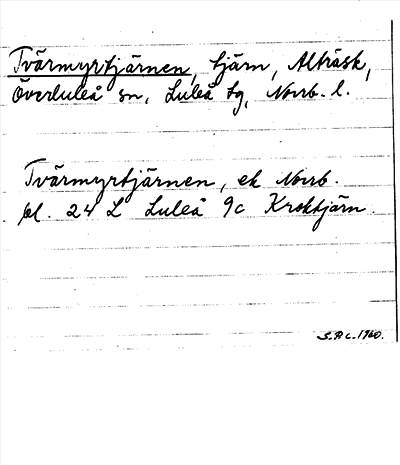 Tvärmyrtjärnen, tjärn, Alträsk,
Överluleå sn, Luleå tg, Norrb. l.
Tvärmyrtjärnen, ek Norrb.
bl. 24 L Luleå 9c Kroktjärn.
S.A.C. 1960.